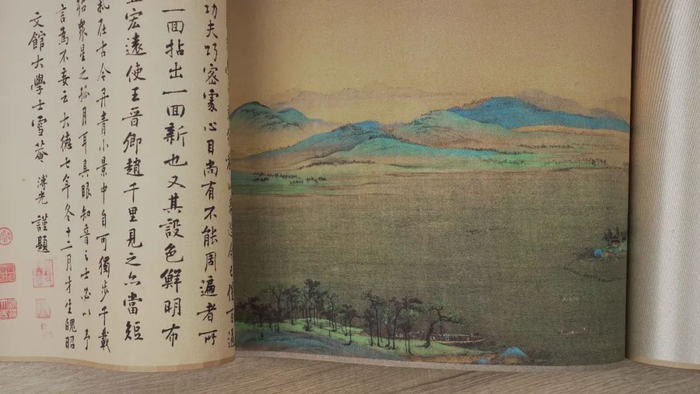 功夫巧密處心目尚有不能周遍者所
一囬拈出一囬新也又其設色鮮明布
宏遠使王晉卿趙千里見之亦當短
氣在古今丹青小景中自可獨步千載
殆眾星之孤月耳具眼知音之士必以予
言為不妄云大德七年冬十二月才生魄昭
文館大學士雪菴溥光謹題